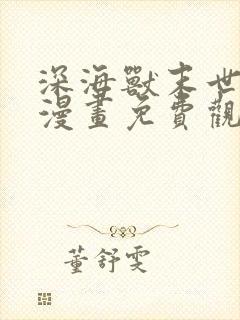 深海獸末世
漫畫免費觀
董舒雯